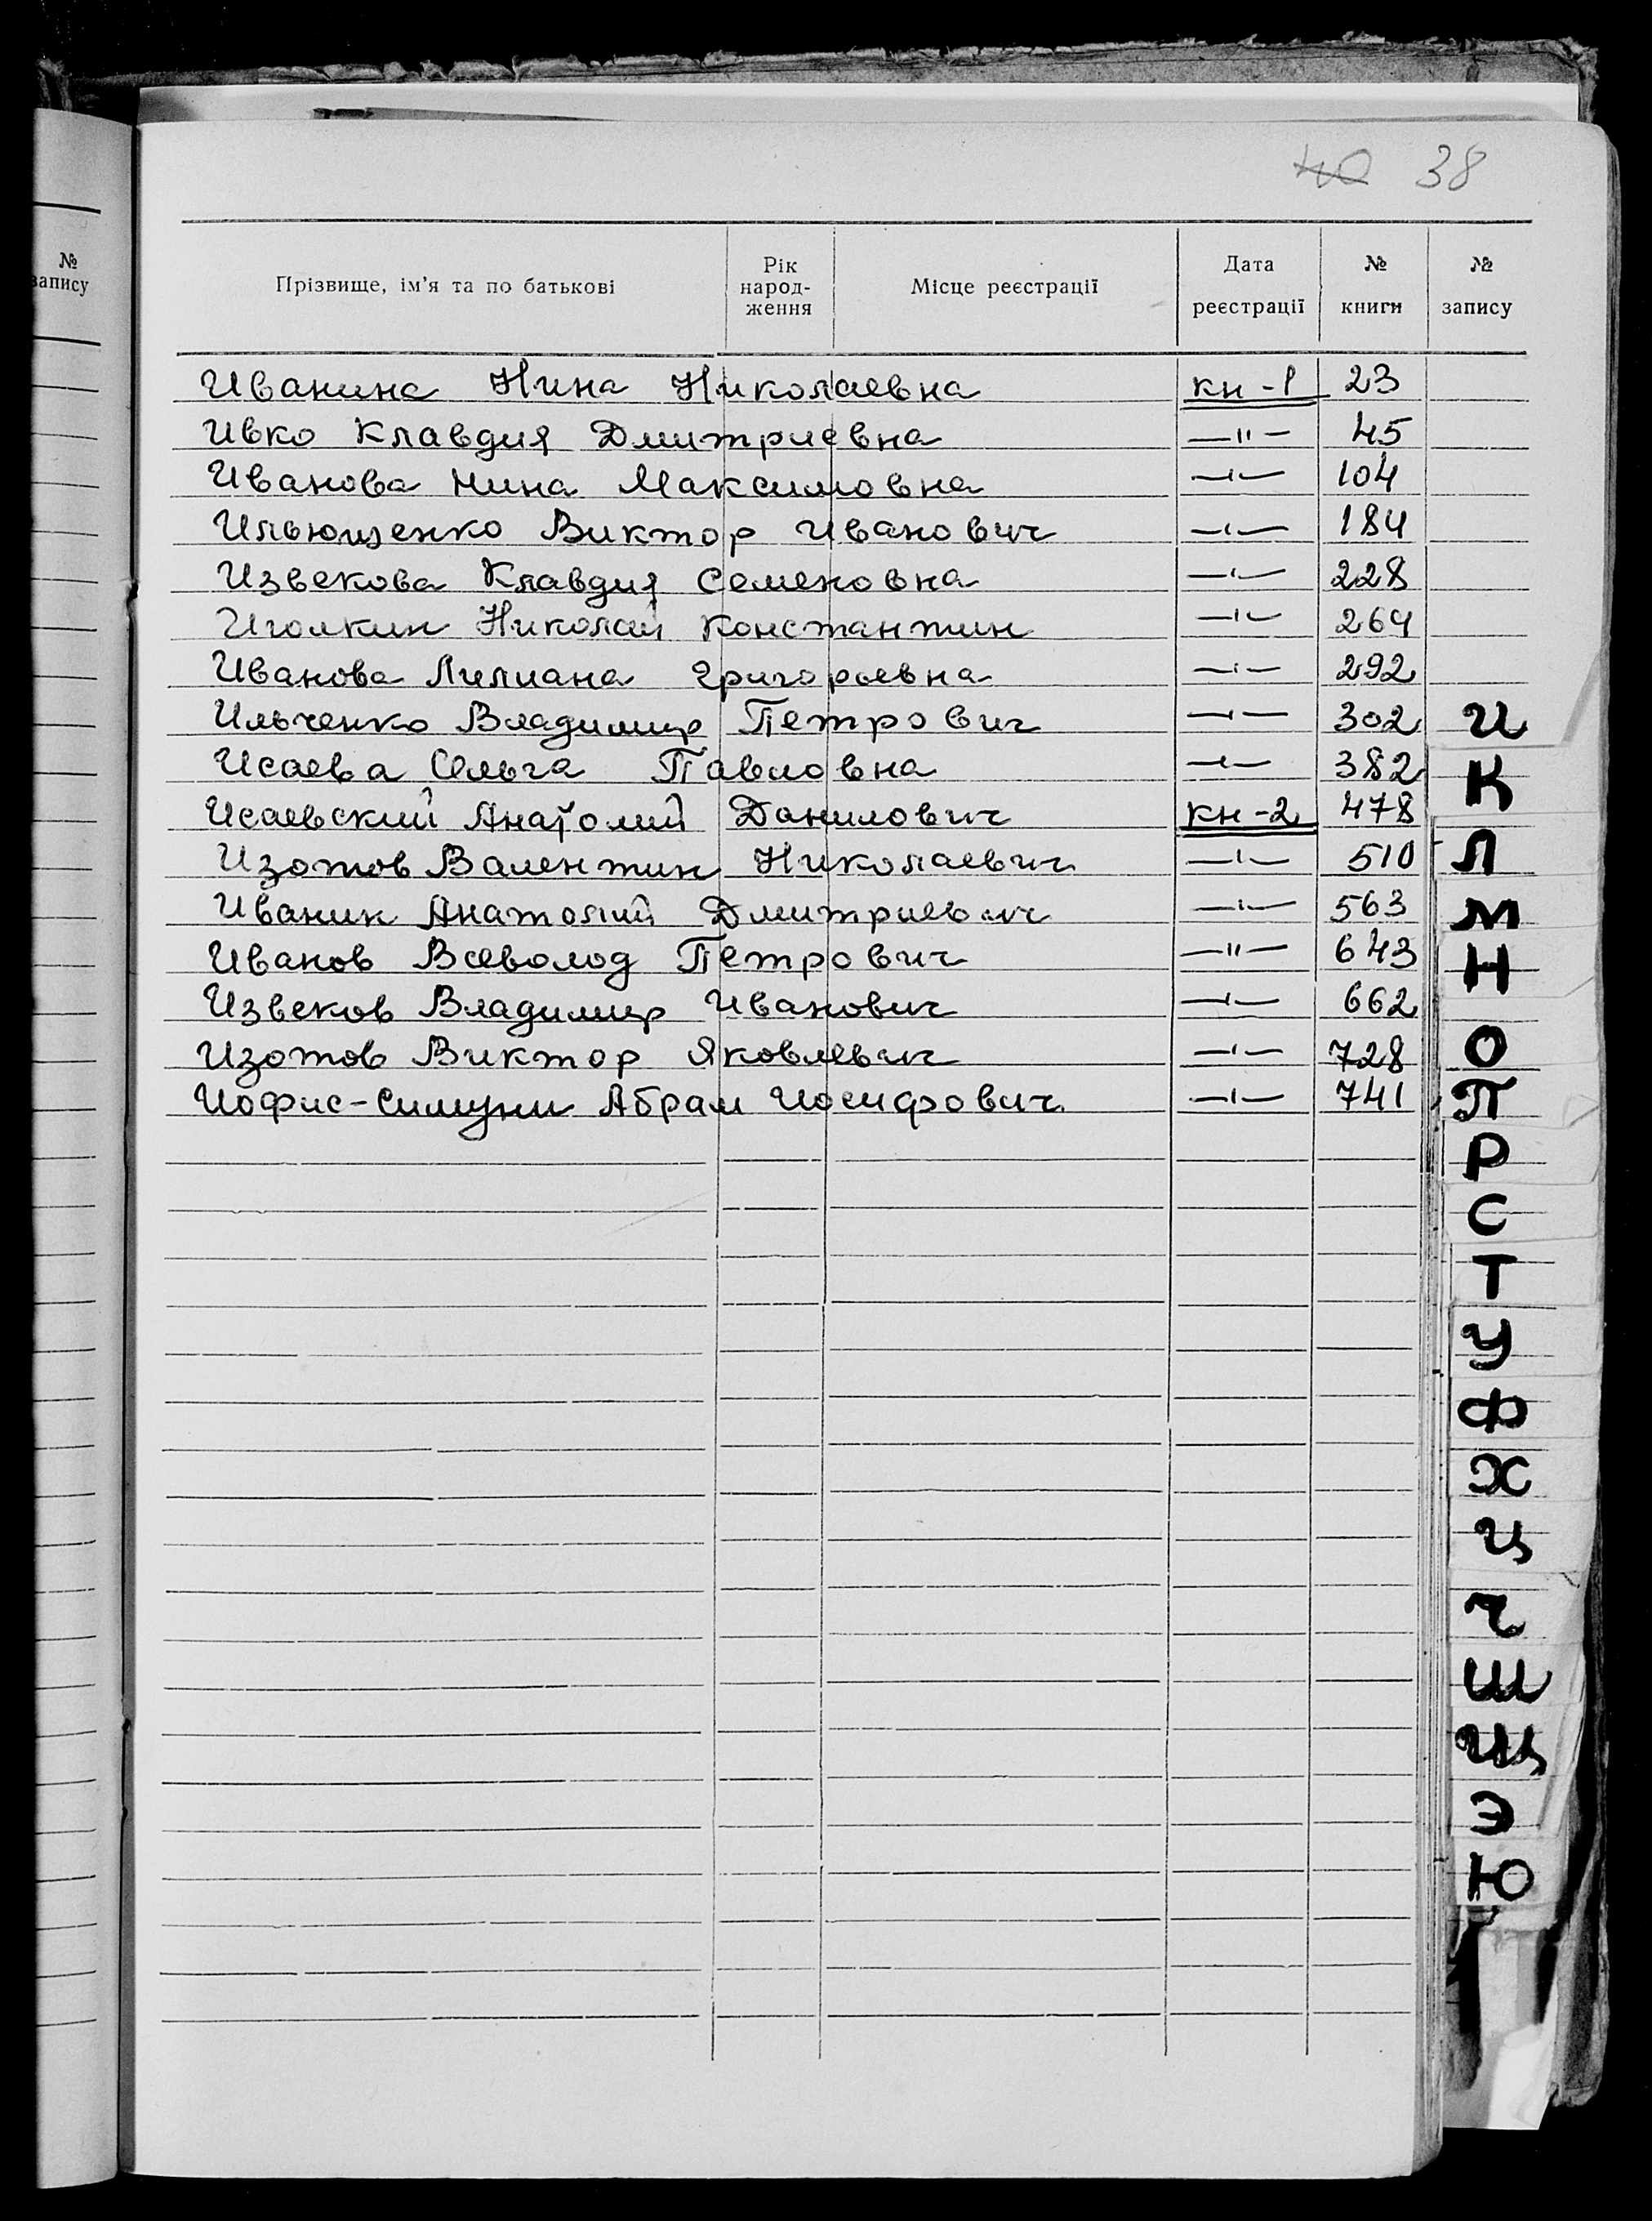 40 38
№ запису
Прізвище, ім'я та по батькові Рік народ- ження Місце реєстрації Дата реєстрації № книги № запису
Иванина Нина Николаевна кн-1 23
Ивко Клавдия Дмитриевна —"— 45
Иванова Нина Максимовна —"— 104
Ильющенко Виктор Иванович —"— 184
Извекова Клавдия Семеновна —"— 228
Иголкин Николай Константин —"— 264
Иванова Лилиана Григорьевна —"— 292
Ильченко Владимир Петрович —"— 302
Исаева Ольга Павловна —"— 382
Исаевский Анатолий Данилович кн-2 478
Изотов Валентин Николаевич —"— 510
Иваник Анатолий Дмитриевич —"— 563
Иванов Всеволод Петрович —"— 643
Извеков Владимир Иванович —"— 662
Изотов Виктор Яковлевич —"— 728
Иофис-Симуни Абрам Иосифович —"— 741
И
К
Л
М
Н
О
П
Р
С
Т
У
Ф
Х
Ц
Ч
Ш
Щ
Э
Ю